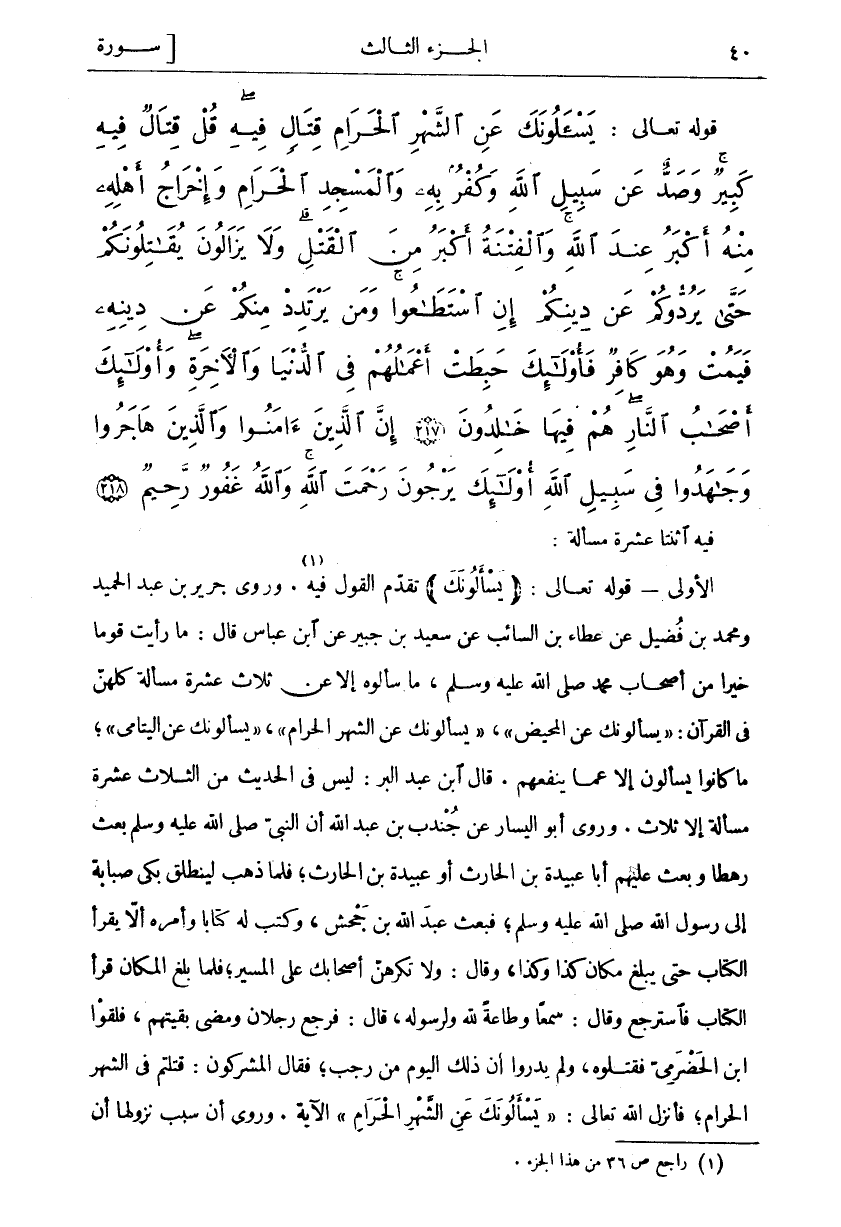 ٤٠ الجـــزء الثالث [ ســـورة
قوله تعـالى : يَسْـَٔلُونَكَ عَنِ ٱلشَّهْرِ ٱلْحَـرَامِ قِتَالٍ فِيـهِۖ قُلْ قِتَالٌ فِيهِ
كَبِيرٌۚ وَصَدٌّ عَن سَبِيلِ ٱللَّهِ وَكُفْرُۢ بِهِۦ وَٱلْمَسْجِدِ ٱلْحَرَامِ وَإِخْرَاجُ أَهْلِهِۦ
مِنْهُ أَكْبَرُ عِنـدَ ٱللَّهِۚ وَٱلْفِتْنَةُ أَكْبَرُ مِنَ ٱلْقَتْلِۗ وَلَا يَزَالُونَ يُقَـٰتِلُونَكُمْ
حَتَّىٰ يَرُدُّوكُمْ عَن دِينِكُمْ إِنِ ٱسْتَطَـٰعُواۚ وَمَن يَرْتَدِدْ مِنكُمْ عَن دِينِهِۦ
فَيَمُتْ وَهُوَ كَافِرٌ فَأُوْلَـٰٓئِكَ حَبِطَتْ أَعْمَـٰلُهُمْ فِى ٱلدُّنْيَا وَٱلْأَخِرَةِۖ وَأُوْلَـٰٓئِكَ
أَصْحَـٰبُ ٱلنَّارِۖ هُمْ فِيهَا خَـٰلِدُونَ ٢١٧ إِنَّ ٱلَّذِينَ ءَامَنُـوا وَٱلَّذِينَ هَاجَرُوا
وَجَـٰهَدُوا فِى سَبِيـلِ ٱللَّهِ أُوْلَـٰٓئِكَ يَرْجُونَ رَحْمَتَ ٱللَّهِۚ وَٱللَّهُ غَفُورٌ رَّحِيمٌ ٢١٨
فيه ٱثنتا عشرة مسألة :
الأولى – قوله تعـالى : ﴿ يَسْأَلُونَكَ ﴾ تقدّم القول فيه (١) . وروى جرير بن عبد الحميد
ومحمد بن فُضيل عن عطاء بن السائب عن سعيد بن جبير عن ٱبن عباس قال : ما رأيت قوما
خيرا من أصحـاب محمد صلى الله عليه وسـلم ، ما سألوه إلا عن ثلاث عشرة مسألة كلهنّ
فى القرآن : «يسألونك عن المحيض» ، « يسألونك عن الشهر الحرام» ، «يسألونك عن اليتامى» ؛
ما كانوا يسألون إلا عمـا ينفعهم . قال ٱبن عبد البر : ليس فى الحديث من الثـلاث عشرة
مسألة إلا ثلاث . وروى أبو اليسار عن جُنْدب بن عبد الله أن النبىّ صلى الله عليه وسلم بعث
رهطا وبعث عليهم أبا عبيدة بن الحارث أو عبيدة بن الحارث ؛ فلما ذهب لينطلق بكى صبابة
إلى رسول الله صلى الله عليه وسلم ؛ فبعث عبدَ الله بن جَحْش ، وكتب له كتابا وأمره ألّا يقرأ
الكتاب حتى يبلغ مكان كذا وكذا ، وقال : ولا تكرهنّ أصحابك على المسير ؛ فلما بلغ المكان قرأ
الكتاب فٱسترجع وقال : سمعًا وطاعةً لله ولرسوله ، قال : فرجع رجلان ومضى بقيتهم ، فلقوْا
ابن الحَضْرَمِىّ فقتـلوه ، ولم يدروا أن ذلك اليوم من رجب ؛ فقال المشركون : قتلتم فى الشهر
الحرام ؛ فأنزل الله تعالى : « يَسْأَلُونَكَ عَنِ الشَّهْرِ الْحَرَامِ » الآية . وروى أن سبب نزولها أن
(١) راجع ص ٣٦ من هذا الجزء .